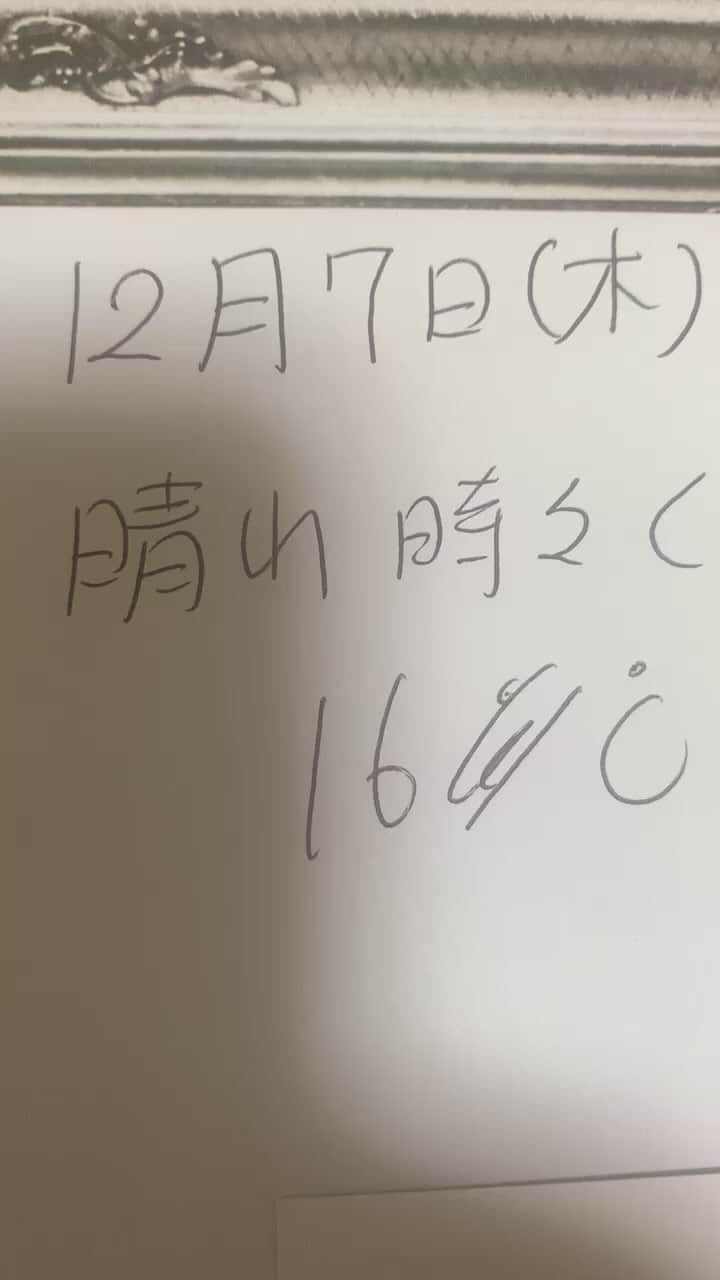 12月7日(木)
晴れ 時々く
16℃